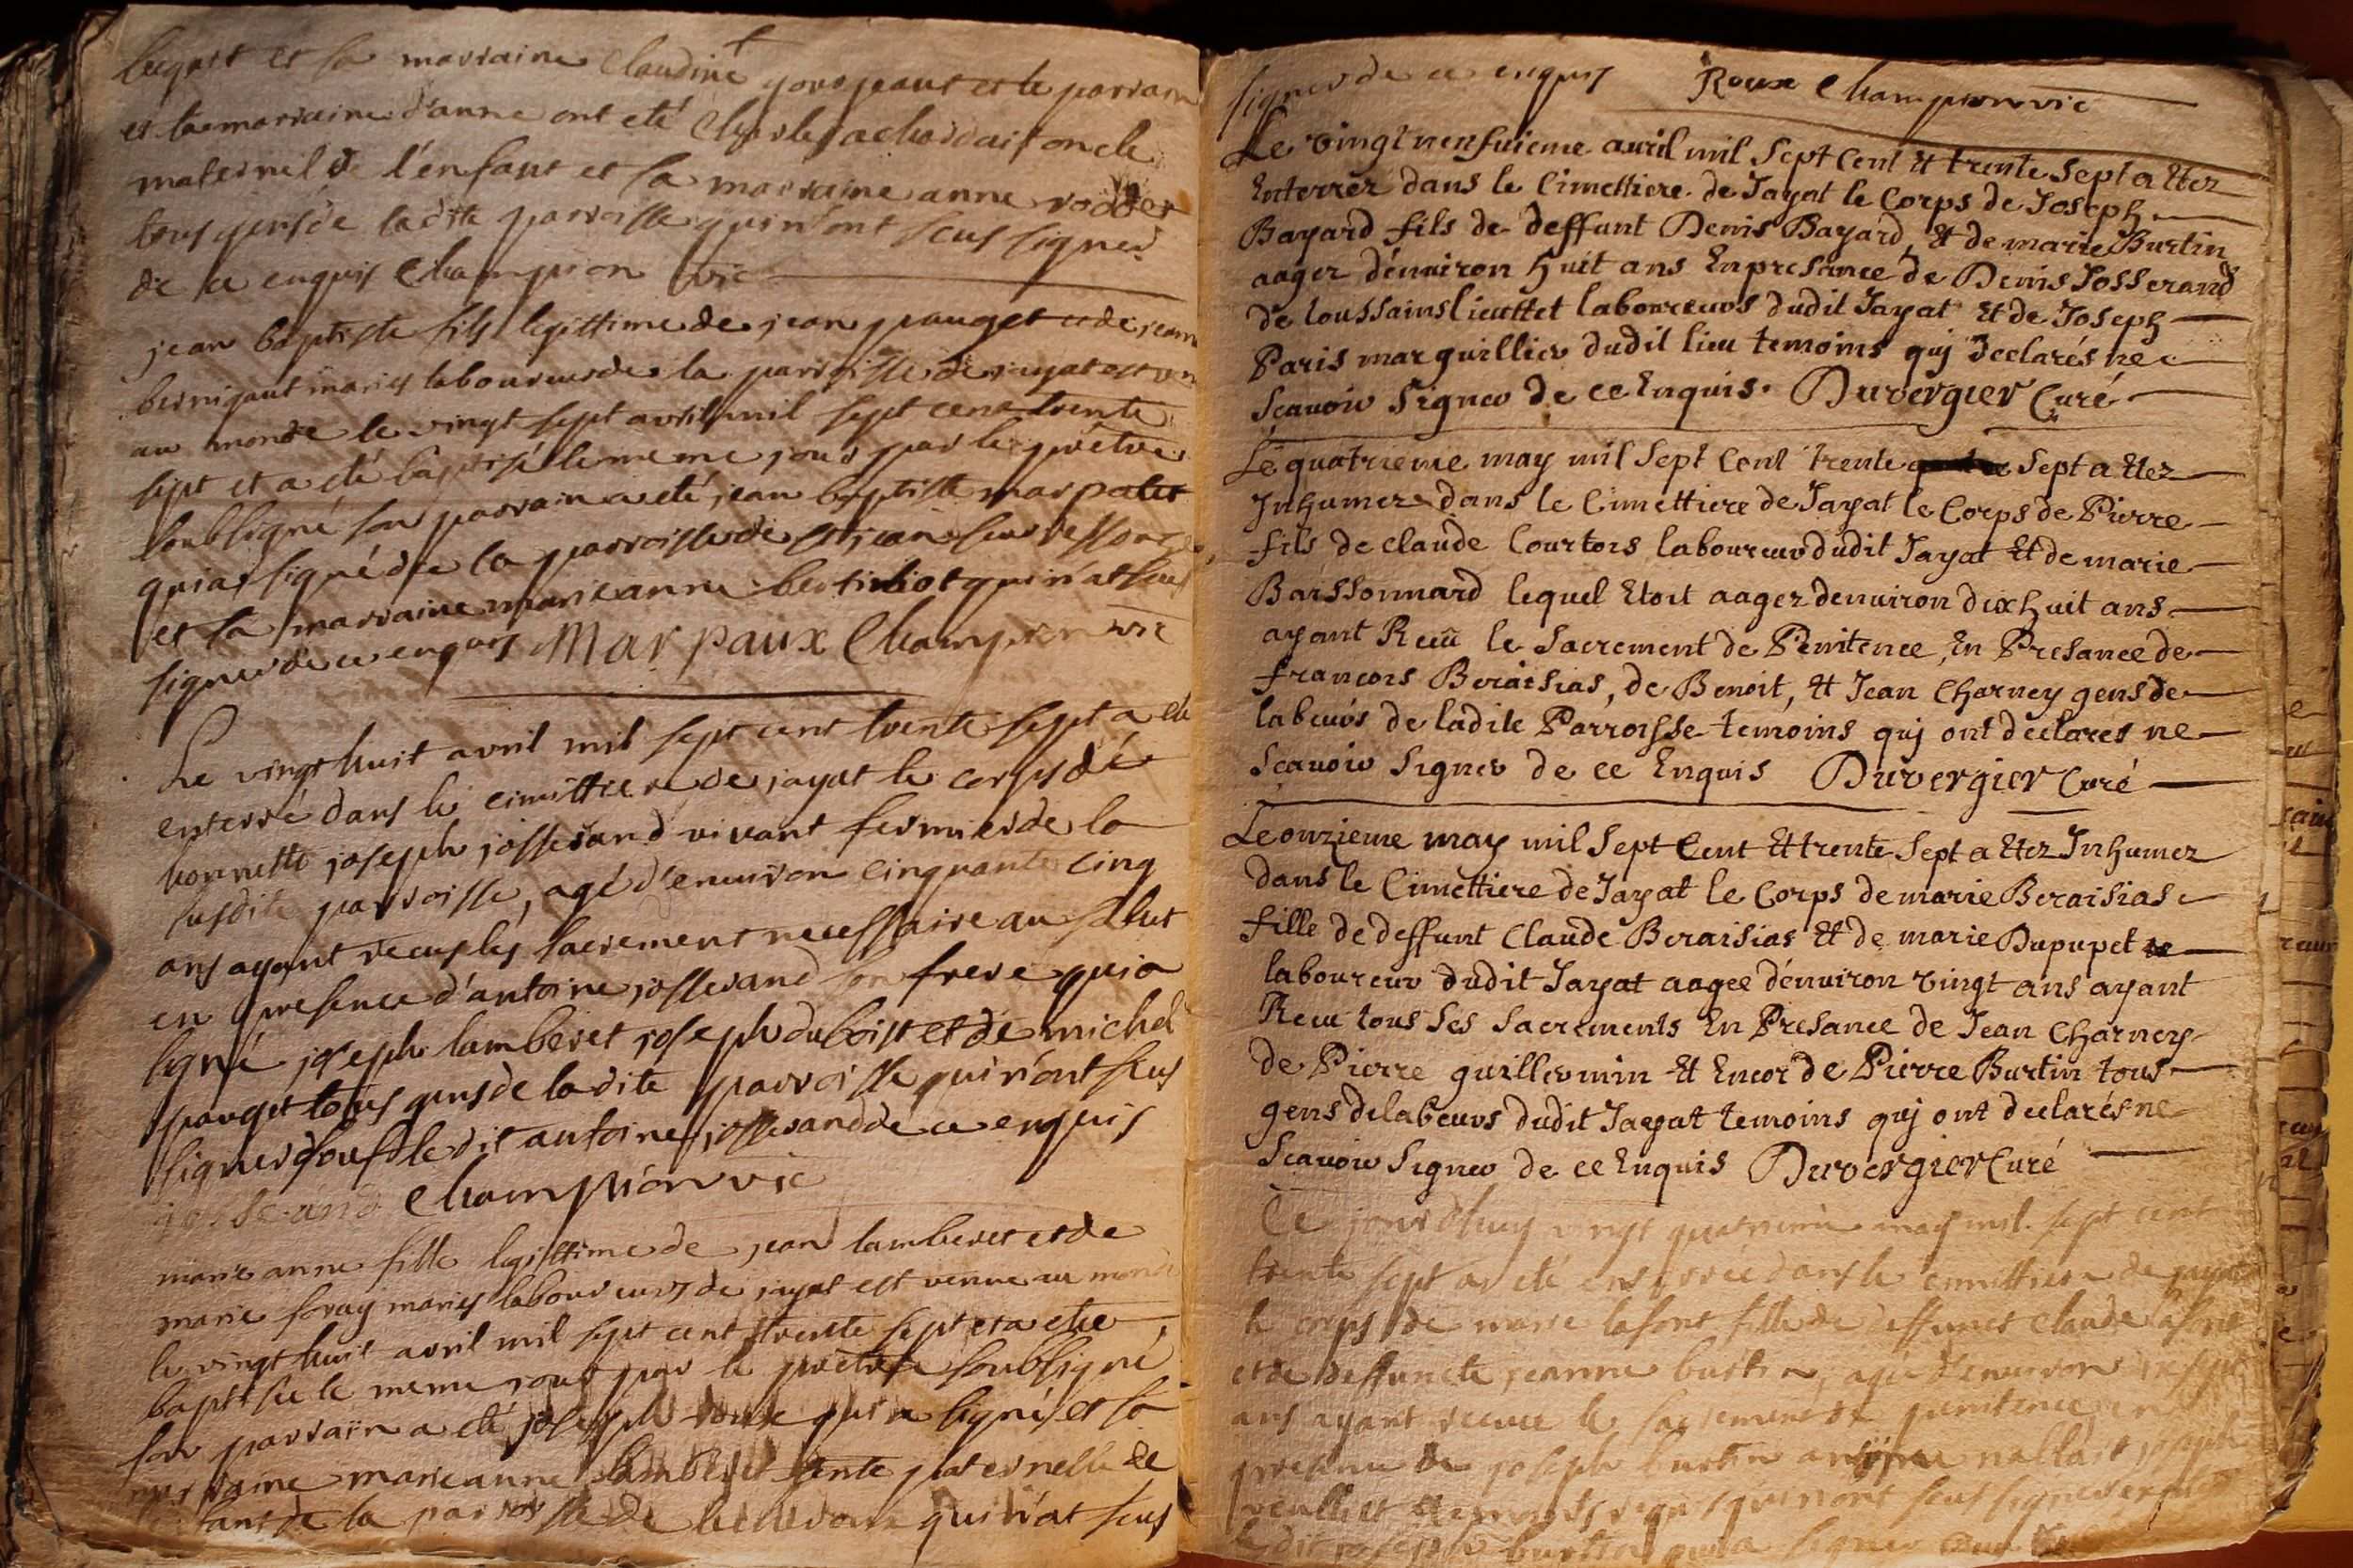 et sa marraine Claudine et le parrain
et la marraine d'anne ont eté Charles oncle
maternel de l'enfant et sa marraine anne
tous gens de ladite parroisse qui n'ont sceus signer
de ce enquis Champion vic
jean baptiste fils legittime de jean pauget et de jeanne
bernigaut mariés laboureurs de la parroisse de jayat est venu
au monde le vingt sept avril mil sept cent trente
sept et a eté baptisé le meme jour par le prêtre
soubsigné son parrain a eté jean baptiste marpaux
qui at signé de la parroisse de st jean sur ressouze
et sa marraine marie anne qui n'at sceus
signer de ce enquis Marpaux Champion vic
Le vingt huit avril mil sept cent trente sept a eté
enterré dans le cimittiere de jayat le corps de
honnette joseph josserand vivant fermier de la
susdite parroisse, agé d'environ cinquante cinq
ans ayant receus les sacrement necessaire au salut
en presence d'antoine josserand son frere qui a
signé joseph lamberet joseph duboist et de michel
pauget tous gens de ladite parroisse qui n'ont sceus
signer sauf ledit antoine josserand de ce enquis
josserand Champion vic
marie anne fille legittime de jean lamberet et de
marie foray mariés laboureurs de jayat est venue au monde
le vingt huit avril mil sept cent trente sept et a etée
baptisée le meme jour par le prêtre soubsigné
son parrain a eté joseph roux qui a signé et sa
marraine marie anne lamberet tante paternelle de
l'anfant de la parroisse de qui n'at sceus
signer de ce enquis Roux Champion vic
Le vingt neufuieme auril mil Sept Cent Et trente Sept a Etez
Enterrez dans le Cimettiere de Jayat le Corps de Joseph
Bayard fils de deffunt Denis Bayard, Et de marie Burtin
aagez dénuiron huit ans En presance de Denis Josserand
de toussains lieuttet laboureurs dudit Jayat Et de Joseph
Paris marguillier dudit lieu temoins quj declarés ne
Scauoir Signer de ce Enquis. Duvergier Curé
Le quatrieme may mil Sept Cent trente Sept a Etez
Inhumez dans le Cimettiere de Jayat le Corps de Pierre
fils de claude Courtois laboureur dudit Jayat Et de marie
Boissonnard lequel Etoit aagez denuiron dix huit ans
ayant Recû le Sacrement de Penitence, En Presance de
francois Beraisias, de Benoit, Et Jean Charney gens de
labeurs de ladite Parroisse temoins quj ont declarés ne
Scauoir Signer de ce Enquis Duvergier Curé
Le onzieme may mil Sept Cent Et trente Sept a Etez Inhumez
dans le Cimettiere de Jayat le Corps de marie Beraisias
fille de deffunt Claude Beraisias Et de marie Dupupet
laboureur dudit Jayat aagee dénuiron vingt ans ayant
Recu tous Ses Sacrements En Presance de Jean Charney
de Pierre guillermin Et Encor de Pierre Burtin tous
gens de labeurs dudit Jayat temoins quj ont declarés ne
Scauoir Signer de ce Enquis Duvergier Curé
Ce jourdhuy vingt quatrieme may mil sept cent
trente sept at eté enterrée dans le cimittiere de jayat
le corps de marie lafont fille de deffunct claude lafont
et de deffuncte jeanne burtin, agée d'environ sept
ans ayant receue le sacrement de penitence en
presence de joseph burtin antoine joseph
temoins requis qui n'ont sceus signer excepté
ledit joseph burtin qui a signé